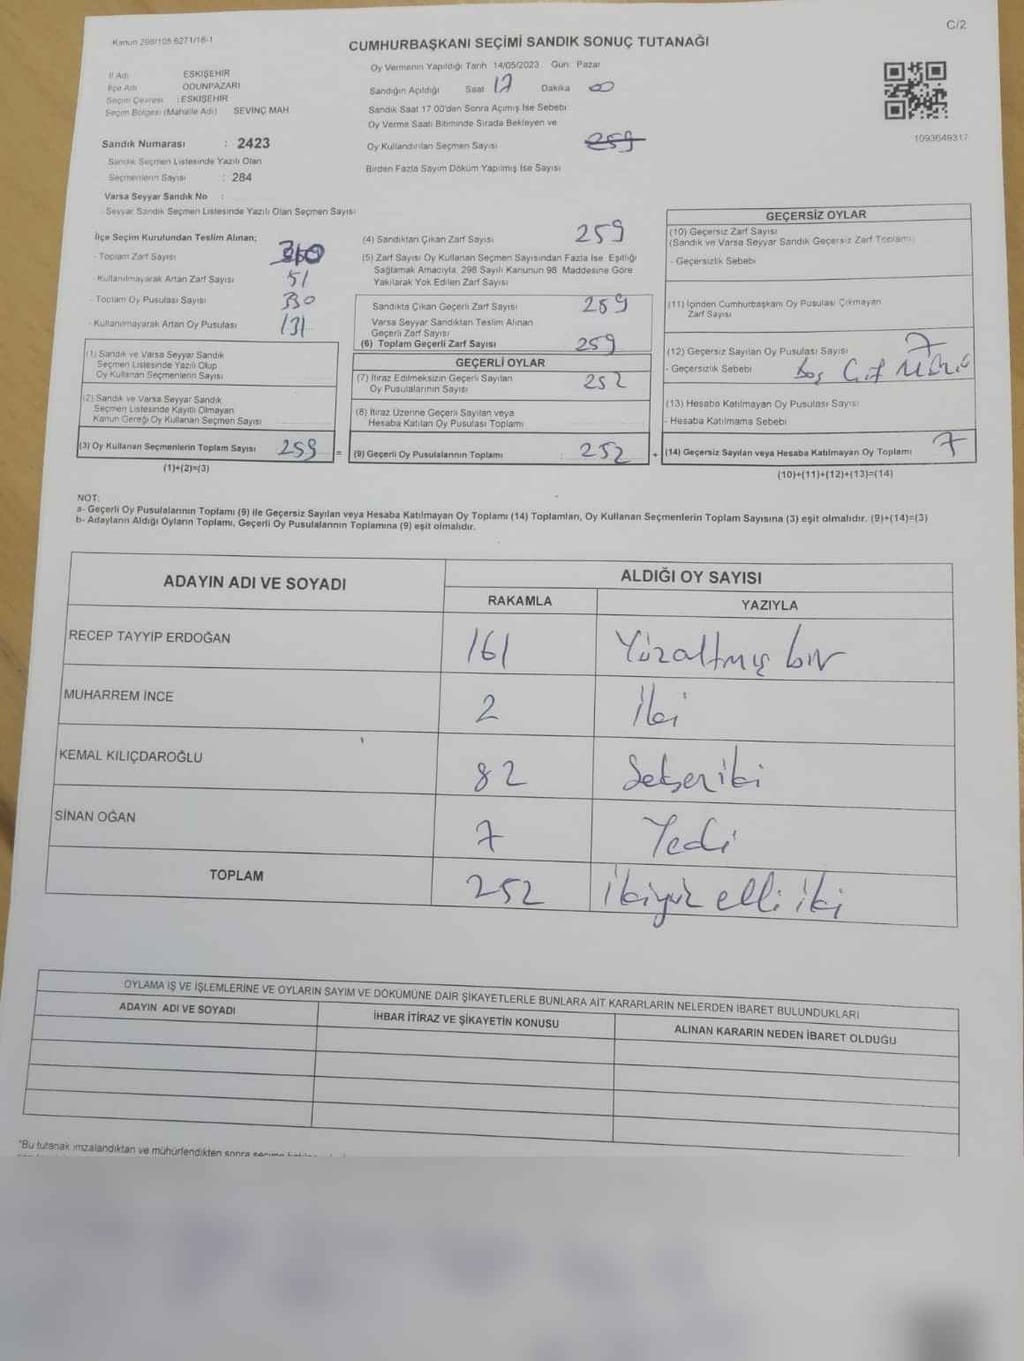 Kanun 298/105 6271/18-1
C/2
CUMHURBAŞKANI SEÇİMİ SANDIK SONUÇ TUTANAĞI
İl Adı ESKİŞEHİR
İlçe Adı ODUNPAZARI
Seçim Çevresi : ESKİŞEHİR
Seçim Bölgesi (Mahalle Adı) SEVİNÇ MAH
Oy Vermenin Yapıldığı Tarih 14/05/2023 Gün: Pazar
Sandığın Açıldığı Saat 17 Dakika 00
Sandık Saat 17 00'den Sonra Açılmış İse Sebebi
Oy Verme Saati Bitiminde Sırada Bekleyen ve
Oy Kullandırılan Seçmen Sayısı 259
Birden Fazla Sayım Döküm Yapılmış İse Sayısı
1093649317
Sandık Numarası : 2423
Sandık Seçmen Listesinde Yazılı Olan
Seçmenlerin Sayısı : 284
Varsa Seyyar Sandık No :
- Seyyar Sandık Seçmen Listesinde Yazılı Olan Seçmen Sayısı
İlçe Seçim Kurulundan Teslim Alınan;
- Toplam Zarf Sayısı
- Kullanılmayarak Artan Zarf Sayısı 51
- Toplam Oy Pusulası Sayısı
- Kullanılmayarak Artan Oy Pusulası 131
(1) Sandık ve Varsa Seyyar Sandık
Seçmen Listesinde Yazılı Olup
Oy Kullanan Seçmenlerin Sayısı
(2) Sandık ve Varsa Seyyar Sandık
Seçmen Listesinde Kayıtlı Olmayan
Kanun Gereği Oy Kullanan Seçmen Sayısı
(3) Oy Kullanan Seçmenlerin Toplam Sayısı 259 =
(1)+(2)=(3)
(4) Sandıktan Çıkan Zarf Sayısı 259
(5) Zarf Sayısı Oy Kullanan Seçmen Sayısından Fazla İse Eşitliği
Sağlamak Amacıyla, 298 Sayılı Kanunun 98. Maddesine Göre
Yakılarak Yok Edilen Zarf Sayısı
Sandıkta Çıkan Geçerli Zarf Sayısı 259
Varsa Seyyar Sandıktan Teslim Alınan
Geçerli Zarf Sayısı
(6) Toplam Geçerli Zarf Sayısı 259
GEÇERLİ OYLAR
(7) İtiraz Edilmeksizin Geçerli Sayılan 252
Oy Pusulalarının Sayısı
(8) İtiraz Üzerine Geçerli Sayılan veya
Hesaba Katılan Oy Pusulası Toplamı
(9) Geçerli Oy Pusulalarının Toplamı : 252 +
GEÇERSİZ OYLAR
(10) Geçersiz Zarf Sayısı
(Sandık ve Varsa Seyyar Sandık Geçersiz Zarf Toplamı)
- Geçersizlik Sebebi
(11) İçinden Cumhurbaşkanı Oy Pusulası Çıkmayan
Zarf Sayısı
(12) Geçersiz Sayılan Oy Pusulası Sayısı 7
- Geçersizlik Sebebi Boş Çift Mühür
(13) Hesaba Katılmayan Oy Pusulası Sayısı
- Hesaba Katılmama Sebebi
(14) Geçersiz Sayılan veya Hesaba Katılmayan Oy Toplamı 7
(10)+(11)+(12)+(13)=(14)
NOT:
a- Geçerli Oy Pusulalarının Toplamı (9) ile Geçersiz Sayılan veya Hesaba Katılmayan Oy Toplamı (14) Toplamları, Oy Kullanan Seçmenlerin Toplam Sayısına (3) eşit olmalıdır. (9)+(14)=(3)
b- Adayların Aldığı Oyların Toplamı, Geçerli Oy Pusulalarının Toplamına (9) eşit olmalıdır.
ADAYIN ADI VE SOYADI
ALDIĞI OY SAYISI
RAKAMLA YAZIYLA
RECEP TAYYİP ERDOĞAN 161 Yüzaltmış bir
MUHARREM İNCE 2 İki
KEMAL KILIÇDAROĞLU 82 Seksen iki
SİNAN OĞAN 7 Yedi
TOPLAM 252 İkiyüz elli iki
OYLAMA İŞ VE İŞLEMLERİNE VE OYLARIN SAYIM VE DÖKÜMÜNE DAİR ŞİKAYETLERLE BUNLARA AİT KARARLARIN NELERDEN İBARET BULUNDUKLARI
ADAYIN ADI VE SOYADI İHBAR İTİRAZ VE ŞİKAYETİN KONUSU ALINAN KARARIN NEDEN İBARET OLDUĞU
"Bu tutanak imzalandıktan ve mühürlendikten sonra